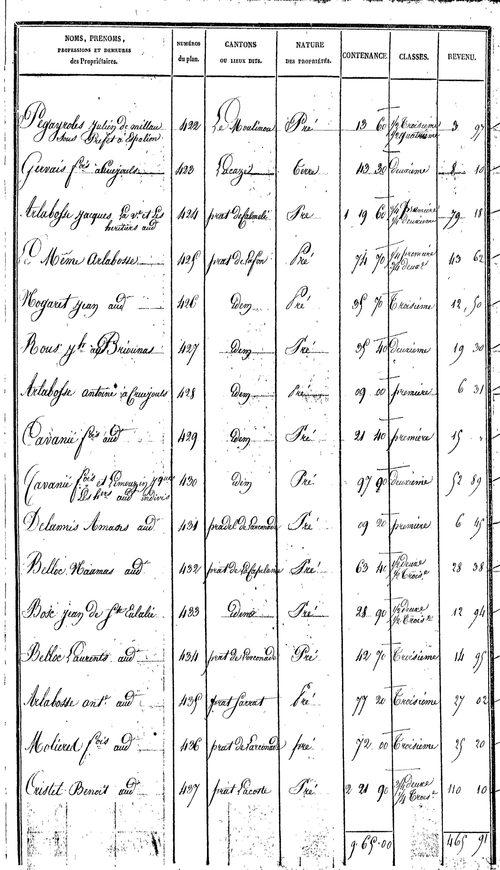 NOMS, PRENOMS, PROFESSIONS ET DEMEURES des Propriétaires. NUMÉROS du plan. CANTONS OU LIEUX DITS. NATURE DES PROPRIÉTÉS. CONTENANCE. CLASSES. REVENU.
Pegayroles Julien de millau Sous Préfet à Espalion 422 Le Moulinou Pré 13 60 1/2 Troisième 3 97
Gervais fois a Cruejouls 423 Lacaze Terre 43 30 deuxieme 8 10
Arlabosse Jacques, La ve et Les heritiers aud 424 prat de Pré 1 19 60 première deuxieme 79 18
Le Même Arlabosse 425 prat de Pré 74 70 premiere deuxe 43 62
Nogaret jean aud 426 idem Pré 35 70 Troisième 12 50
Rous 427 idem Pré 35 40 deuxième 19 30
Arlabosse antoine à Cruejouls 428 idem Pré 09 00 première 6 31
Cavanié fois aud 429 idem Pré 21 40 première 15 "
Cavanié fois et Jques Les hers aud indivis 430 idem Pré 97 90 deuxieme 52 89
Delauris Amans aud 431 pradel de Pré 09 20 première 6 45
Belloc aud 432 prat de La Capelanie Pré 63 40 1/2 deuxe 1/2 Troise 28 38
Bosc jean de Ste Eulalie 433 idem Pré 28 90 1/2 deuxe 1/2 Troise 12 94
Belloc Laurents aud 434 prat de Pré 42 70 Troisieme 14 95
Arlabosse ante aud 435 prat Pré 77 20 Troisième 27 02
Molieres fois aud 436 prat de pré 72 00 Troisième 25 20
Benoit aud 437 prat Lacoste Pré 2 21 90 3/4 deuxe 1/4 Troise 110 10
9. 65. 00 465 91